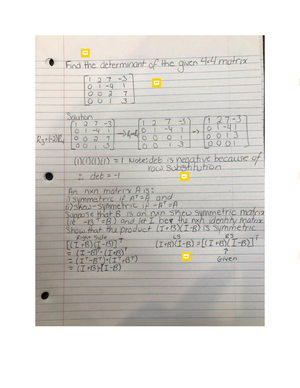 Find the determinant of the given 4x4 matrix
[1 2 7 -3
0 1 -4 1
0 0 2 7
0 0 1 3]
Solution
[1 2 7 -3 [1 2 7 -3 [1 2 7 -3
0 1 -4 1 0 1 -4 1 0 1 -4 1
0 0 2 7 0 0 0 1 0 0 1 3
0 0 1 3] 0 0 1 3] 0 0 0 1]
(1)(1)(1)(1) = 1 Note: det is negative because of
row Substitution
∴ det = -1
An nxn matrix A is:
i) symmetric if Aᵀ=A and
ii) skew-symmetric if -Aᵀ=A
Suppose that B is an nxn skew symmetric matrix
(ie -Bᵀ=B) and let I be the nxn identity matrix
Show that the product (I+B)(I-B) is symmetric
Right Side LS RS
[(I+B)(I-B)]ᵀ (I+B)(I-B) = [(I+B)(I-B)]ᵀ
= (I-B)ᵀ(I+B)ᵀ
= (Iᵀ-Bᵀ)(Iᵀ+Bᵀ) Given
= (I+B)(I-B)